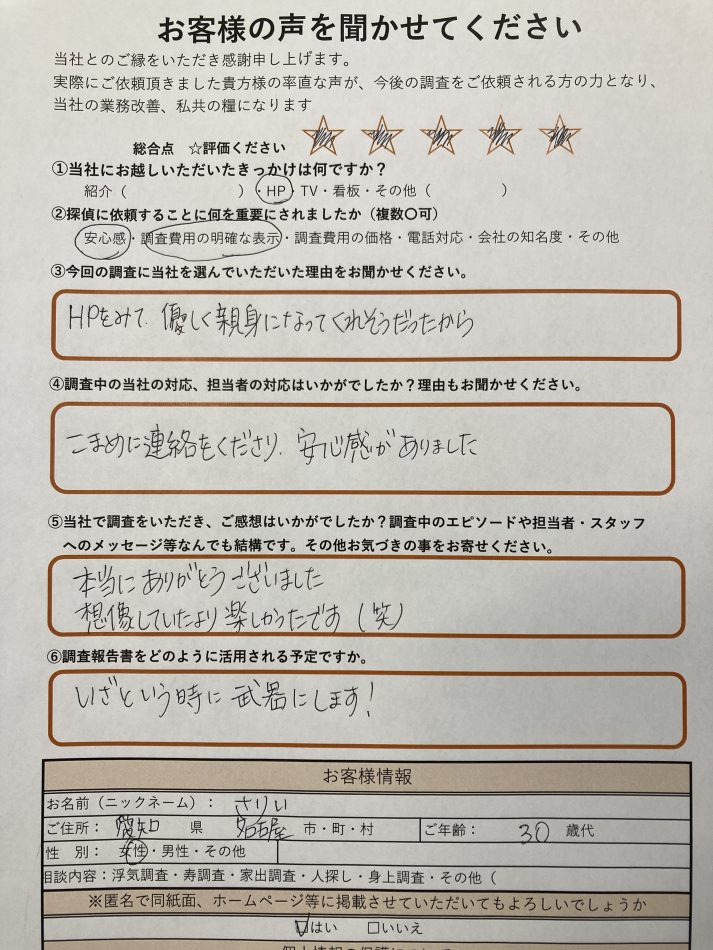 お客様の声を聞かせてください
当社とのご縁をいただき感謝申し上げます。
実際にご依頼頂きました貴方様の率直な声が、今後の調査をご依頼される方の力となり、
当社の業務改善、私共の糧になります
総合点　☆評価ください
①当社にお越しいただいたきっかけは何ですか？
紹介（　　　　　　　）・HP・TV・看板・その他（　　　　　）
②探偵に依頼することに何を重要にされましたか（複数〇可）
安心感・調査費用の明確な表示・調査費用の価格・電話対応・会社の知名度・その他
③今回の調査に当社を選んでいただいた理由をお聞かせください。
HPをみて、優しく親身になってくれそうだったから
④調査中の当社の対応、担当者の対応はいかがでしたか？理由もお聞かせください。
こまめに連絡をくださり、安心感がありました
⑤当社で調査をいただき、ご感想はいかがでしたか？調査中のエピソードや担当者・スタッフ
へのメッセージ等なんでも結構です。その他お気づきの事をお寄せください。
本当にありがとうございました
想像していたより楽しかったです（笑）
⑥調査報告書をどのように活用される予定ですか。
いざという時に武器にします！
お客様情報
お名前（ニックネーム）：　さりい
ご住所：　愛知　県　名古屋　市・町・村　ご年齢：　30　歳代
性　別：　女性・男性・その他
相談内容：浮気調査・寿調査・家出調査・人探し・身上調査・その他（
※匿名で同紙面、ホームページ等に掲載させていただいてもよろしいでしょうか
☑はい　□いいえ